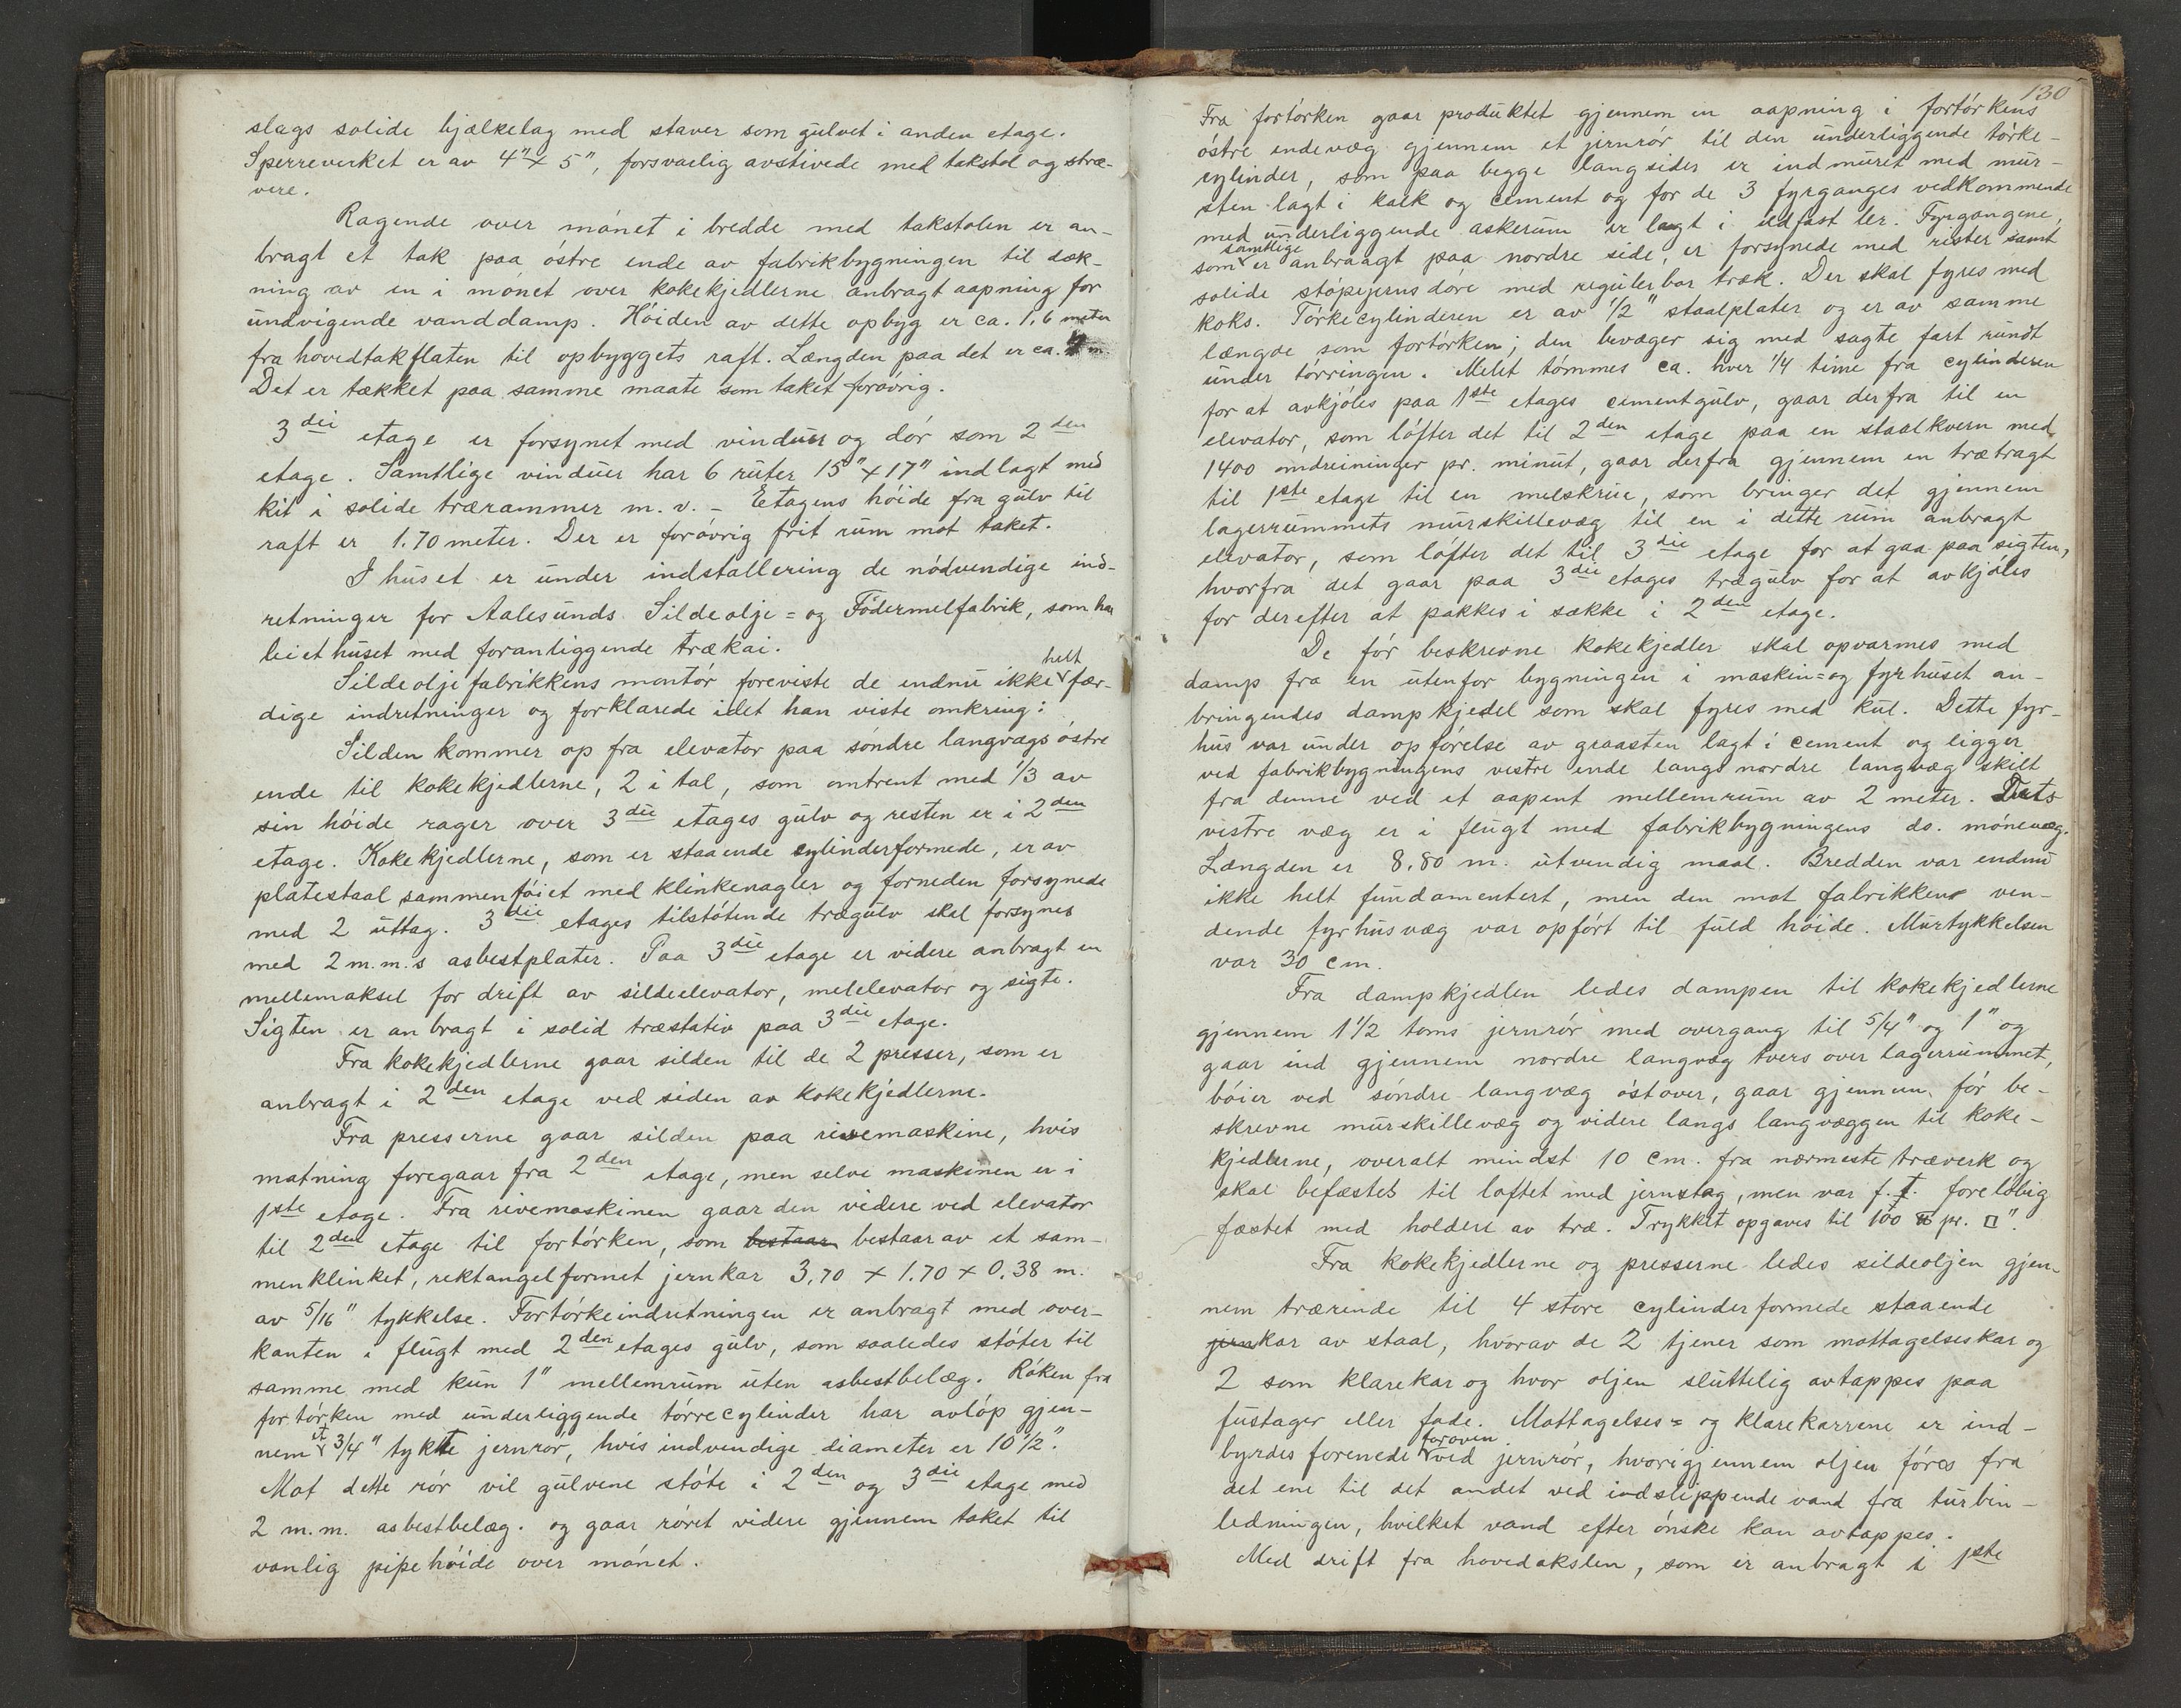 slags solide bjælkelag med staver som gulvet i anden etage.
Sperreverket er av 4" x 5", forsvarlig avstivede med takstol og stræ-
vere.
Ragende over mønet i bredde med takstolen er an-
bragt et tak paa østre ende av fabrikbygningen til dæk-
ning av en i mønet over kokekjedlerne anbragt aapning for
undvigende vanddamp. Høiden av dette opbyg er ca. 1,6 meter
fra hovedtakflaten til opbyggets raft. Længden paa det er ca. m
Det er tækket paa samme maate som taket forøvrig.
3die etage er forsynet med vinduer og dør som 2den
etage. Samtlige vinduer har 6 ruter 15" x 17" indlagt med
kit i solide trærammer m. v. - Etagens høide fra gulv til
raft er 1.70 meter. Der er forøvrig frit rum mot taket.
I huset er under indstallering de nødvendige ind-
retninger for Aalesunds Sildeolje= og Fodermelfabrik, som har
leiet huset med foranliggende trækai.
Sildeoljefabrikkens montør foreviste de endnu ikke helt fær-
dige indretninger og forklarede idet han viste omkring:
Silden kommer op fra elevator paa søndre langvægs østre
ende til kokekjedlerne, 2 i tal, som omtrent med 1/3 av
sin høide rager over 3die etages gulv og resten er i 2den
etage. Kokekjedlerne, som er staaende cylinderformede, er av
platestaal sammenføiet med klinkenagler og forneden forsynede
med 2 uttag. 3die etages tilstøtende trægulv skal forsynes
med 2 m.m.s asbestplater. Paa 3die etage er videre anbragt en
mellemaksel for drift av sildeelevator, melelevator og sigte.
Sigten er anbragt i solid træstativ paa 3die etage.
Fra kokekjedlerne gaar silden til de 2 presser, som er
anbragt i 2den etage ved siden av kokekjedlerne.
Fra presserne gaar silden paa rivemaskine, hvis
matning foregaar fra 2den etage, men selve maskinen er i
1ste etage. Fra rivemaskinen gaar den videre ved elevator
til 2den etage til fortørken, som bestaar bestaar av et sam-
menklinket, rektangelformet jernkar 3,70 x 1.70 x 0.38 m.
av 5/16" tykkelse. Fortørkeindretningen er anbragt med over-
kanten i flugt med 2den etages gulv, som saaledes støter til
samme med kun 1" mellemrum uten asbestbelæg. Røken fra
fortørken med underliggende tørrecylinder har avløp gjen-
nem et 3/4" tykte jernrør, hvis indvendige diameter er 10 1/2".
Mot dette rør vil gulvene støte i 2den og 3die etage med
2 m.m. asbestbelæg. og gaar røret videre gjennem taket til
vanlig pipehøide over mønet.
130
Fra fortørken gaar produktet gjennem en aapning i fortørkens
østre endevæg gjennem et jernrør til den underliggende tørke-
cylinder, som paa begge langsider er indmuret med mur-
sten lagt i kalk og cement og for de 3 fyrganges vedkommende
med underliggende askerum er lagt i ildfast ler. Fyrgangene,
som samtlige er anbraagt paa nordre side, er forsynede med rister samt
solide støpejerns døre med regulerbar træk. Der skal fyres med
koks. Tørkecylinderen er av 1/2" staalplater og er av samme
længde som fortørken; den bevæger sig med sagte fart rundt
under tørringen. Melet tømmes ca. hver 1/4 time fra cylinderen
for at avkjøles paa 1ste etages cementgulv, gaar derfra til en
elevator, som løfter det til 2den etage paa en staalkvern med
1400 omdreininger pr. minut, gaar derfra gjennem en trætragt
til 1ste etage til en melskrue, som bringer det gjennem
lagerrummets murskillevæg til en i dette rum anbragt
elevator, som løfter det til 3die etage for at gaa paa sigten,
hvorfra det gaar paa 3die etages trægulv for at avkjøles
for derefter at pakkes i sække i 2den etage.
De før beskrevne kokekjedler skal opvarmes med
damp fra en utenfor bygningen i maskin= og fyrhuset an-
bringendes dampkjedel som skal fyres med kul. Dette fyr-
hus var under opførelse av graasten lagt i cement og ligger
ved fabrikbygningens vestre ende langs nordre langvæg skilt
fra denne ved et aapent mellemrum av 2 meter. Dets
vestre væg er i flugt med fabrikbygningens do. mønevæg.
Længden er 8.80 m. utvendig maal. Bredden var endnu
ikke helt fundamentert, men den mot fabrikken ven-
dende fyrhusvæg var opført til fuld høide. Murtykkelsen
var 30 cm.
Fra dampkjedlen ledes dampen til kokekjedlerne
gjennem 1 1/2 toms jernrør med overgang til 5/4" og 1" og
gaar ind gjennem nordre langvæg tvers over lagerrummet,
bøier ved søndre langvæg østover, gaar gjennem før be-
skrevne murskillevæg og videre langs langvæggen til koke-
kjedlerne, overalt mindst 10 cm. fra nærmeste træverk og
skal befæstes til loftet med jernstag, men var f. t. foreløbig
fæstet med holdere av træ. Trykket opgaves til 100 ℔ pr. □".
Fra kokekjedlerne og presserne ledes sildeoljen gjen-
nem trærende til 4 store cylinderformede staaende
jernkar av staal, hvorav de 2 tjener som mottagelseskar og
2 som klarekar og hvor oljen sluttelig avtappes paa
fustager eller fade. Mottagelses= og klarekarrene er ind-
byrdes forenede foroven ved jernrør, hvorigjennem oljen føres fra
det ene til det andet ved indslippende vand fra turbin-
ledningen, hvilket vand efter ønske kan avtappes.
Med drift fra hovedakslen, som er anbragt i 1ste